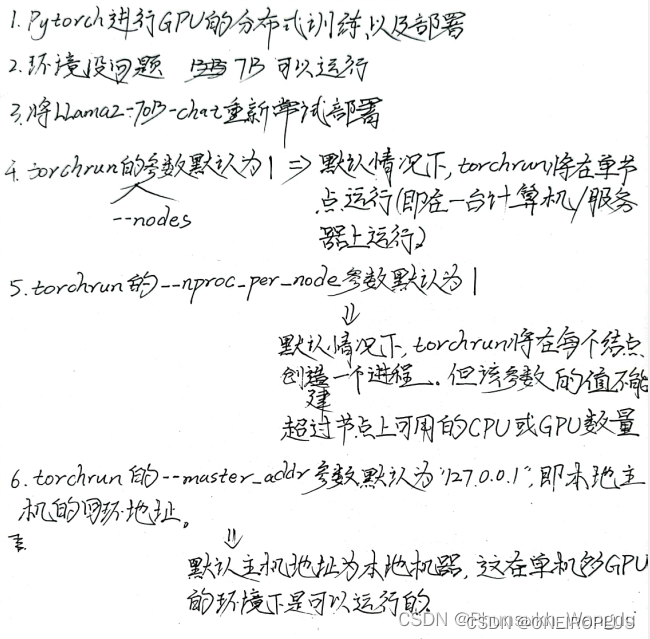 1.Pytorch进行GPU的分布式训练,以及部署
2.环境没问题 7B 可以运行
3.将LLama2-70B-chat重新尝试部署
4.torchrun的参数默认为1 => 默认情况下,torchrun将在单节
--nodes
点运行(即在一台计算机/服务
器上运行)
5.torchrun的--nproc_per_node参数默认为1
⇓
默认情况下,torchrun将在每个结点
创建一个进程。但该参数的值不能
超过节点上可用的CPU或GPU数量
6.torchrun的--master_addr参数默认为"127.0.0.1",即本地主
机的回环地址。
⇓
默认主机地址为本地机器,这在单机多GPU
的环境下是可以运行的
CSDN @ONEIROPEUS